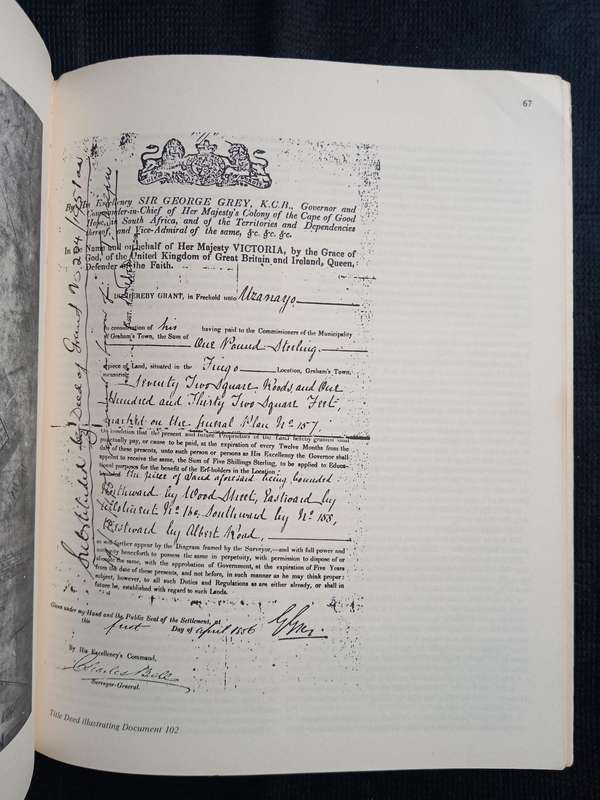 67
By His Excellency SIR GEORGE GREY, K.C.B., Governor and
Commander-in-Chief of Her Majesty's Colony of the Cape of Good
Hope, in South Africa, and of the Territories and Dependencies
thereof, and Vice-Admiral of the same, &c. &c. &c.
In the Name and on behalf of Her Majesty VICTORIA, by the Grace of
God, of the United Kingdom of Great Britain and Ireland, Queen,
Defender of the Faith.
I DO HEREBY GRANT, in Freehold unto Uzanayo
in consideration of his having paid to the Commissioners of the Municipality
of Graham's Town, the Sum of One Pound Sterling
a piece of Land, situated in the Fingo Location, Graham's Town,
measuring
Seventy Two Square Roods, and One
Hundred and Thirty Two Square Feet,
marked on the General Plan No 157.
On condition that the present and future Proprietors of the Land hereby granted shall
punctually pay, or cause to be paid, at the expiration of every Twelve Months from the
date of these presents, unto such person or persons as His Excellency the Governor shall
appoint to receive the same, the Sum of Five Shillings Sterling, to be applied to Educa-
tional purposes for the benefit of the Erf-holders in the Location
the piece of Land aforesaid being bounded
Northward by Wood Street, Eastward by
Allotment No 160, Southward by No 158,
Westward by Albert Road,
as will further appear by the Diagram framed by the Surveyor,—and with full power and
authority henceforth to possess the same in perpetuity, with permission to dispose of or
alienate the same, with the approbation of Government, at the expiration of Five Years
from the date of these presents, and not before, in such manner as he may think proper:
subject, however, to all such Duties and Regulations as are either already, or shall in
future be, established with regard to such Lands.
Given under my Hand and the Public Seal of the Settlement, at
this first Day of April 1856
G Grey
By His Excellency's Command,
Charles Bell
Surveyor-General.
Substituted by Deed of Grant No
Title Deed illustrating Document 102